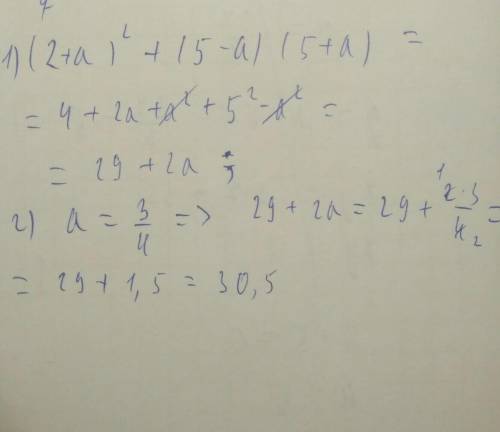 1) (2+a)² + (5-a)(5+a) =
= 4 + 2a + a² + 5² - a² =
= 29 + 2a ;
2) a = 3/4 => 29 + 2a = 29 + 2·3/4 =
= 29 + 1,5 = 30,5